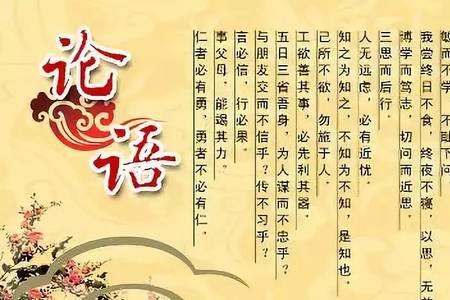 论语
敏而不学，不耻下问
我尝终日不食，终夜不寝，以思，无
博学而笃志，切问而近思。
三思而后行。
人无远虑，必有近忧。
知之为知之，不知为不知，是知也。
己所不欲，勿施于人。
工欲善其事，必先利其器。
五日三省吾身，为人谋而不忠乎？
与朋友交而不信乎？传不习乎？
言必信，行必果。
事父母 能竭其力。
仁者必有勇，勇者不必有仁。